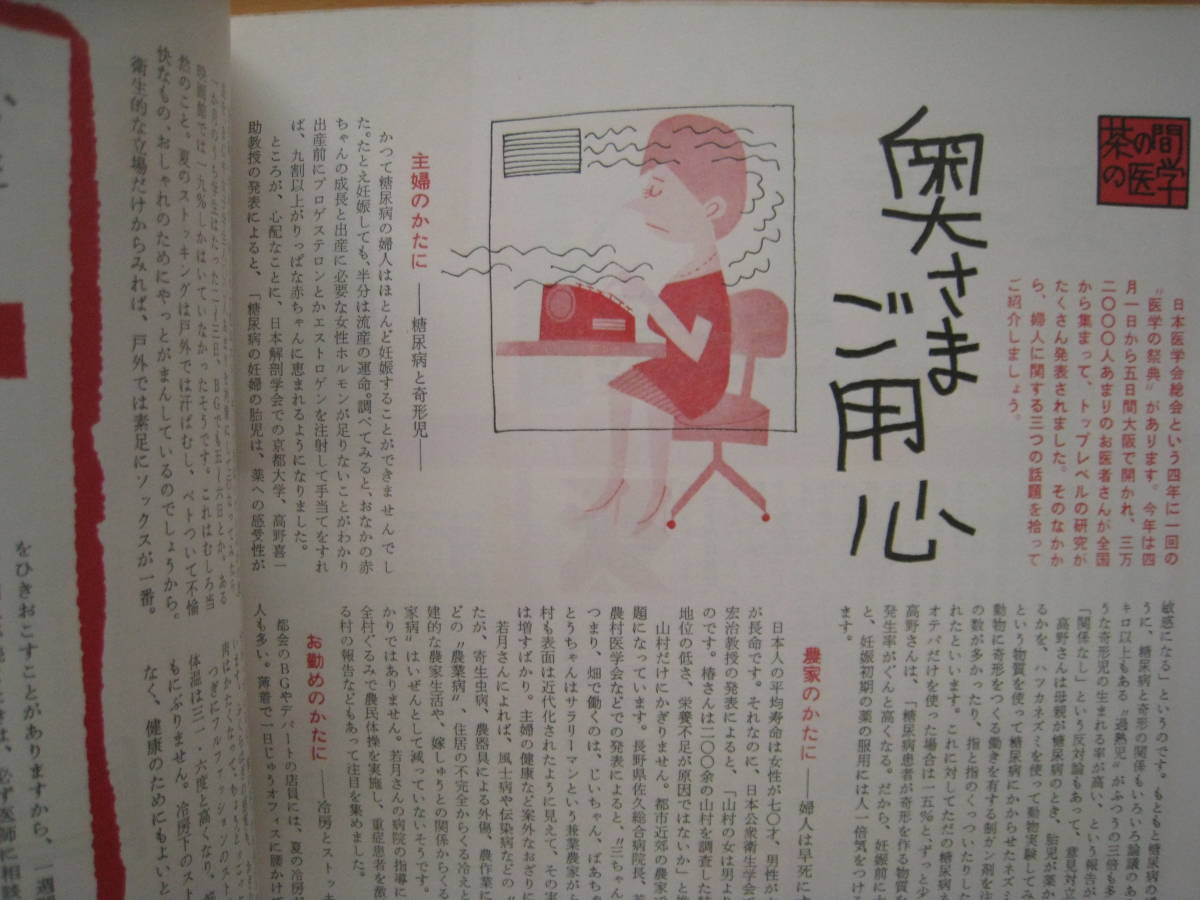 茶の間
の医学
奥さま
ご用心
日本医学会総会という四年に一回の
“医学の祭典”があります。今年は四
月一日から五日間大阪で開かれ、三万
二〇〇〇人あまりのお医者さんが全国
から集まって、トップレベルの研究が
たくさん発表されました。そのなかか
ら、婦人に関する三つの話題を拾って
ご紹介しましょう。
主婦のかたに——糖尿病と奇形児——
かつて糖尿病の婦人はほとんど妊娠することができませんでし
た。たとえ妊娠しても、半分は流産の運命。調べてみると、おなかの赤
ちゃんの成長と出産に必要な女性ホルモンが足りないことがわかり
出産前にプロゲステロンとかエストロゲンを注射して手当てをすれ
ば、九割以上がりっぱな赤ちゃんに恵まれるようになりました。
ところが、心配なことに、日本解剖学会での京都大学、高野喜一
助教授の発表によると、「糖尿病の妊婦の胎児は、薬への感受性が
敏感になる」というのです。もともと糖尿病の
うに、糖尿病と奇形の関係もいろいろ論議のあ
キロ以上もある“過熟児”がふつうの三倍も多
うな奇形児の生まれる率が高い、という報告が
「関係なし」という反対論もあって、意見対立
高野さんは母親が糖尿病のとき、胎児が薬か
るかを、ハツカネズミを使って動物実験してみ
動物に奇形をつくる働きを有する制ガン剤を注
という物質を使って糖尿病にかからせたネズミ
の数が多かったり、指と指のくっついたりした
れたといいます。これに対してただの糖尿病
オテパだけを使った場合は一五%と、ずっと少
高野さんは、「糖尿病患者が奇形を作る物質な
発生率がぐんと高くなる。だから、妊娠前に
と、妊娠初期の薬の服用には人一倍気をつける
ます。
農家のかたに——婦人は早死に
日本人の平均寿命は女性が七〇才、男性が
が長命です。それなのに、日本公衆衛生学会で
宏治教授の発表によると、「山村の女は男より
のです。椿さんは二〇〇余の山村を調査した結
地位の低さ、栄養不足が原因ではないか」と推
山村だけにかぎりません。都市近郊の農家で
題になっています。長野県佐久総合病院長、若
農村医学会などでの発表によると、“三ちゃん
つまり、畑で働くのは、じいちゃん、ばあちゃ
とうちゃんはサラリーマンという兼業農家が
村も表面は近代化されたように見えて、その実
は増すばかり。主婦の健康など案外なおざりに
若月さんによれば、風土病や伝染病などの“
たが、寄生虫病、農器具による外傷、農作業に
どの“農業病”、住居の不完全からくる冷えと
建的な農家生活や、嫁しゅうとの関係からくる
家病”はいぜんとして減っていないそうです。
かりではありません。若月さんの病院の指導に
全村ぐるみで農民体操を実施し、重症患者を激
る村の報告などもあって注目を集めました。
お勤めのかたに——冷房とストッキ
都会のBGやデパートの店員には、夏の冷房が
人も多い。薄着で一日じゅうオフィスに腰かけて
映画館では一九%しかはいていなかったそうです。これはむしろ当
然のこと。夏のストッキングは戸外では汗ばむし、ベトついて不愉
快なもの、おしゃれのためにやっとがまんしているのでしょうから。
衛生的な立場だけからみれば、戸外では素足にソックスが一番。
つぎにフルファッションのスト
体温は三一・六度と高くなり、
もにぶりません。冷房下のスト
なく、健康のためにもよいと
をひきおこすことがありますから、一週
必ず医師に相談